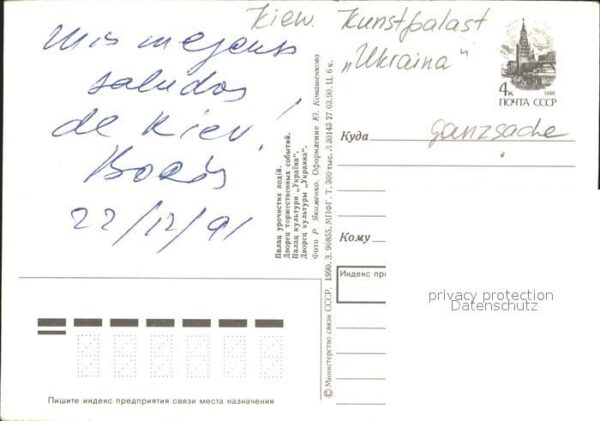 Kiew. Kunstpalast
„Ukraina"
Mis mejores
saludos
de Kiev!
Boris
22/12/91
Палац урочистих подій.
Дворец торжественных событий.
Палац культури „Україна".
Дворец культуры „Украина".
Фото Р. Якименко. Оформление Ю. Конашенкова
© Министерство связи СССР. 1990. З. 90855. МПФГ. Т. 300 тыс. Л 30143 27.03.90. Ц. 6 к.
4к
1988
ПОЧТА СССР
Куда
Ganzsache
Кому
Индекс пре
privacy protection
Datenschutz
Пишите индекс предприятия связи места назначения